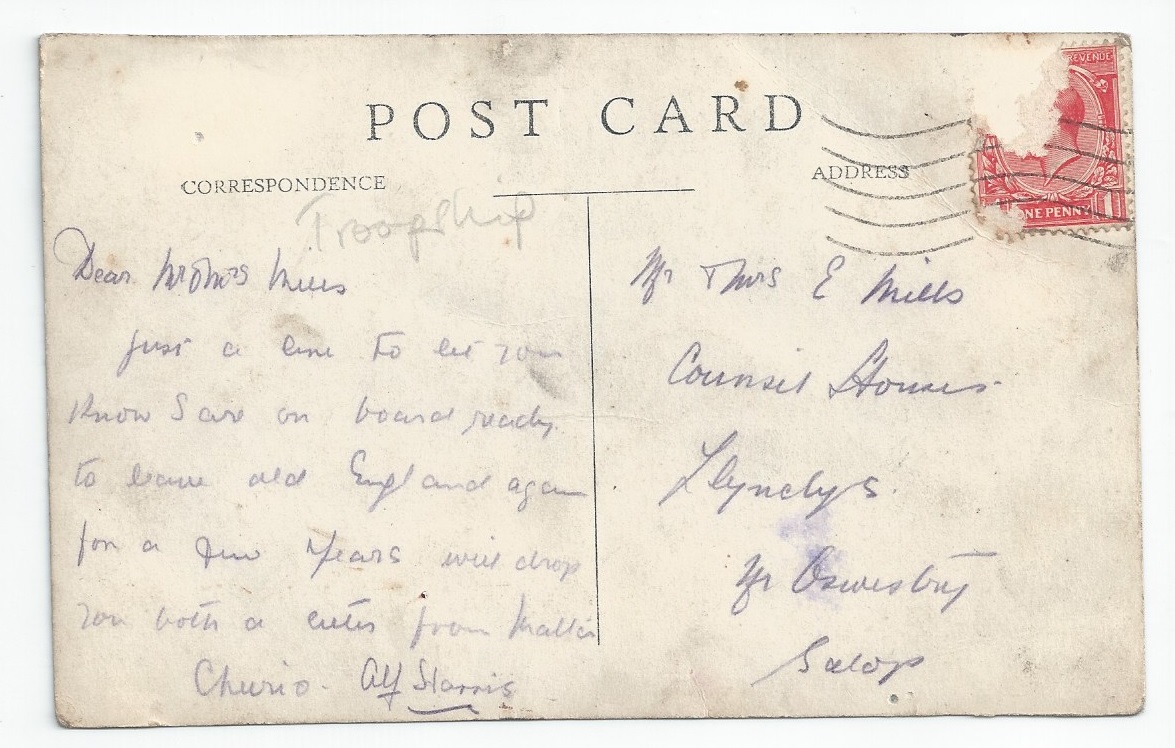 POST CARD
CORRESPONDENCE
ADDRESS
REVENUE
ONE PENNY
Troopship
Dear Mr & Mrs Mills
Just a line to let you
know I are on board ready
to leave old England again
for a few years will drop
you both a letter from Malta
Cheerio. Alf Harris
Mr & Mrs E Mills
Counsil Houses
Llynclys.
Nr Oswestry
Salop